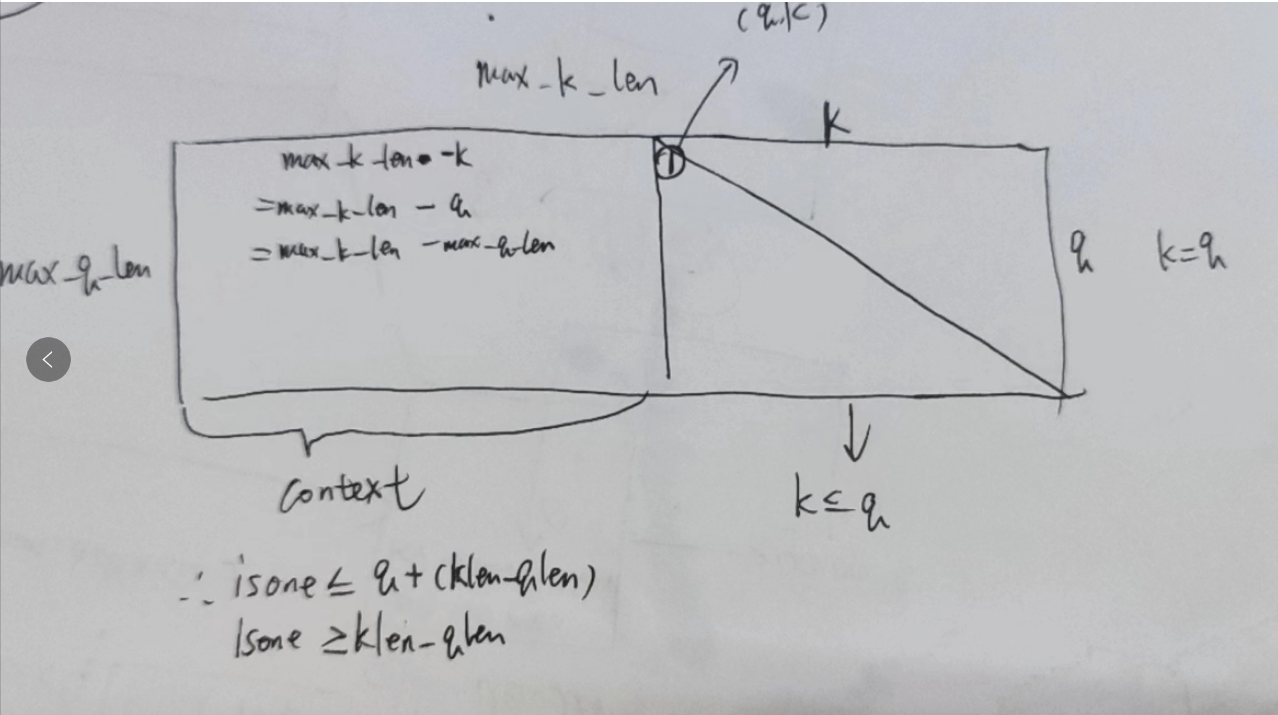 (q,k)
max_k_len
k
max_k_len -k
=max_k_len - q
=max_k_len -max_q_len
max_q_len
q
k=q
1
context
k≤q
∴ isone ≤ q+(klen-qlen)
isone ≥klen-qlen